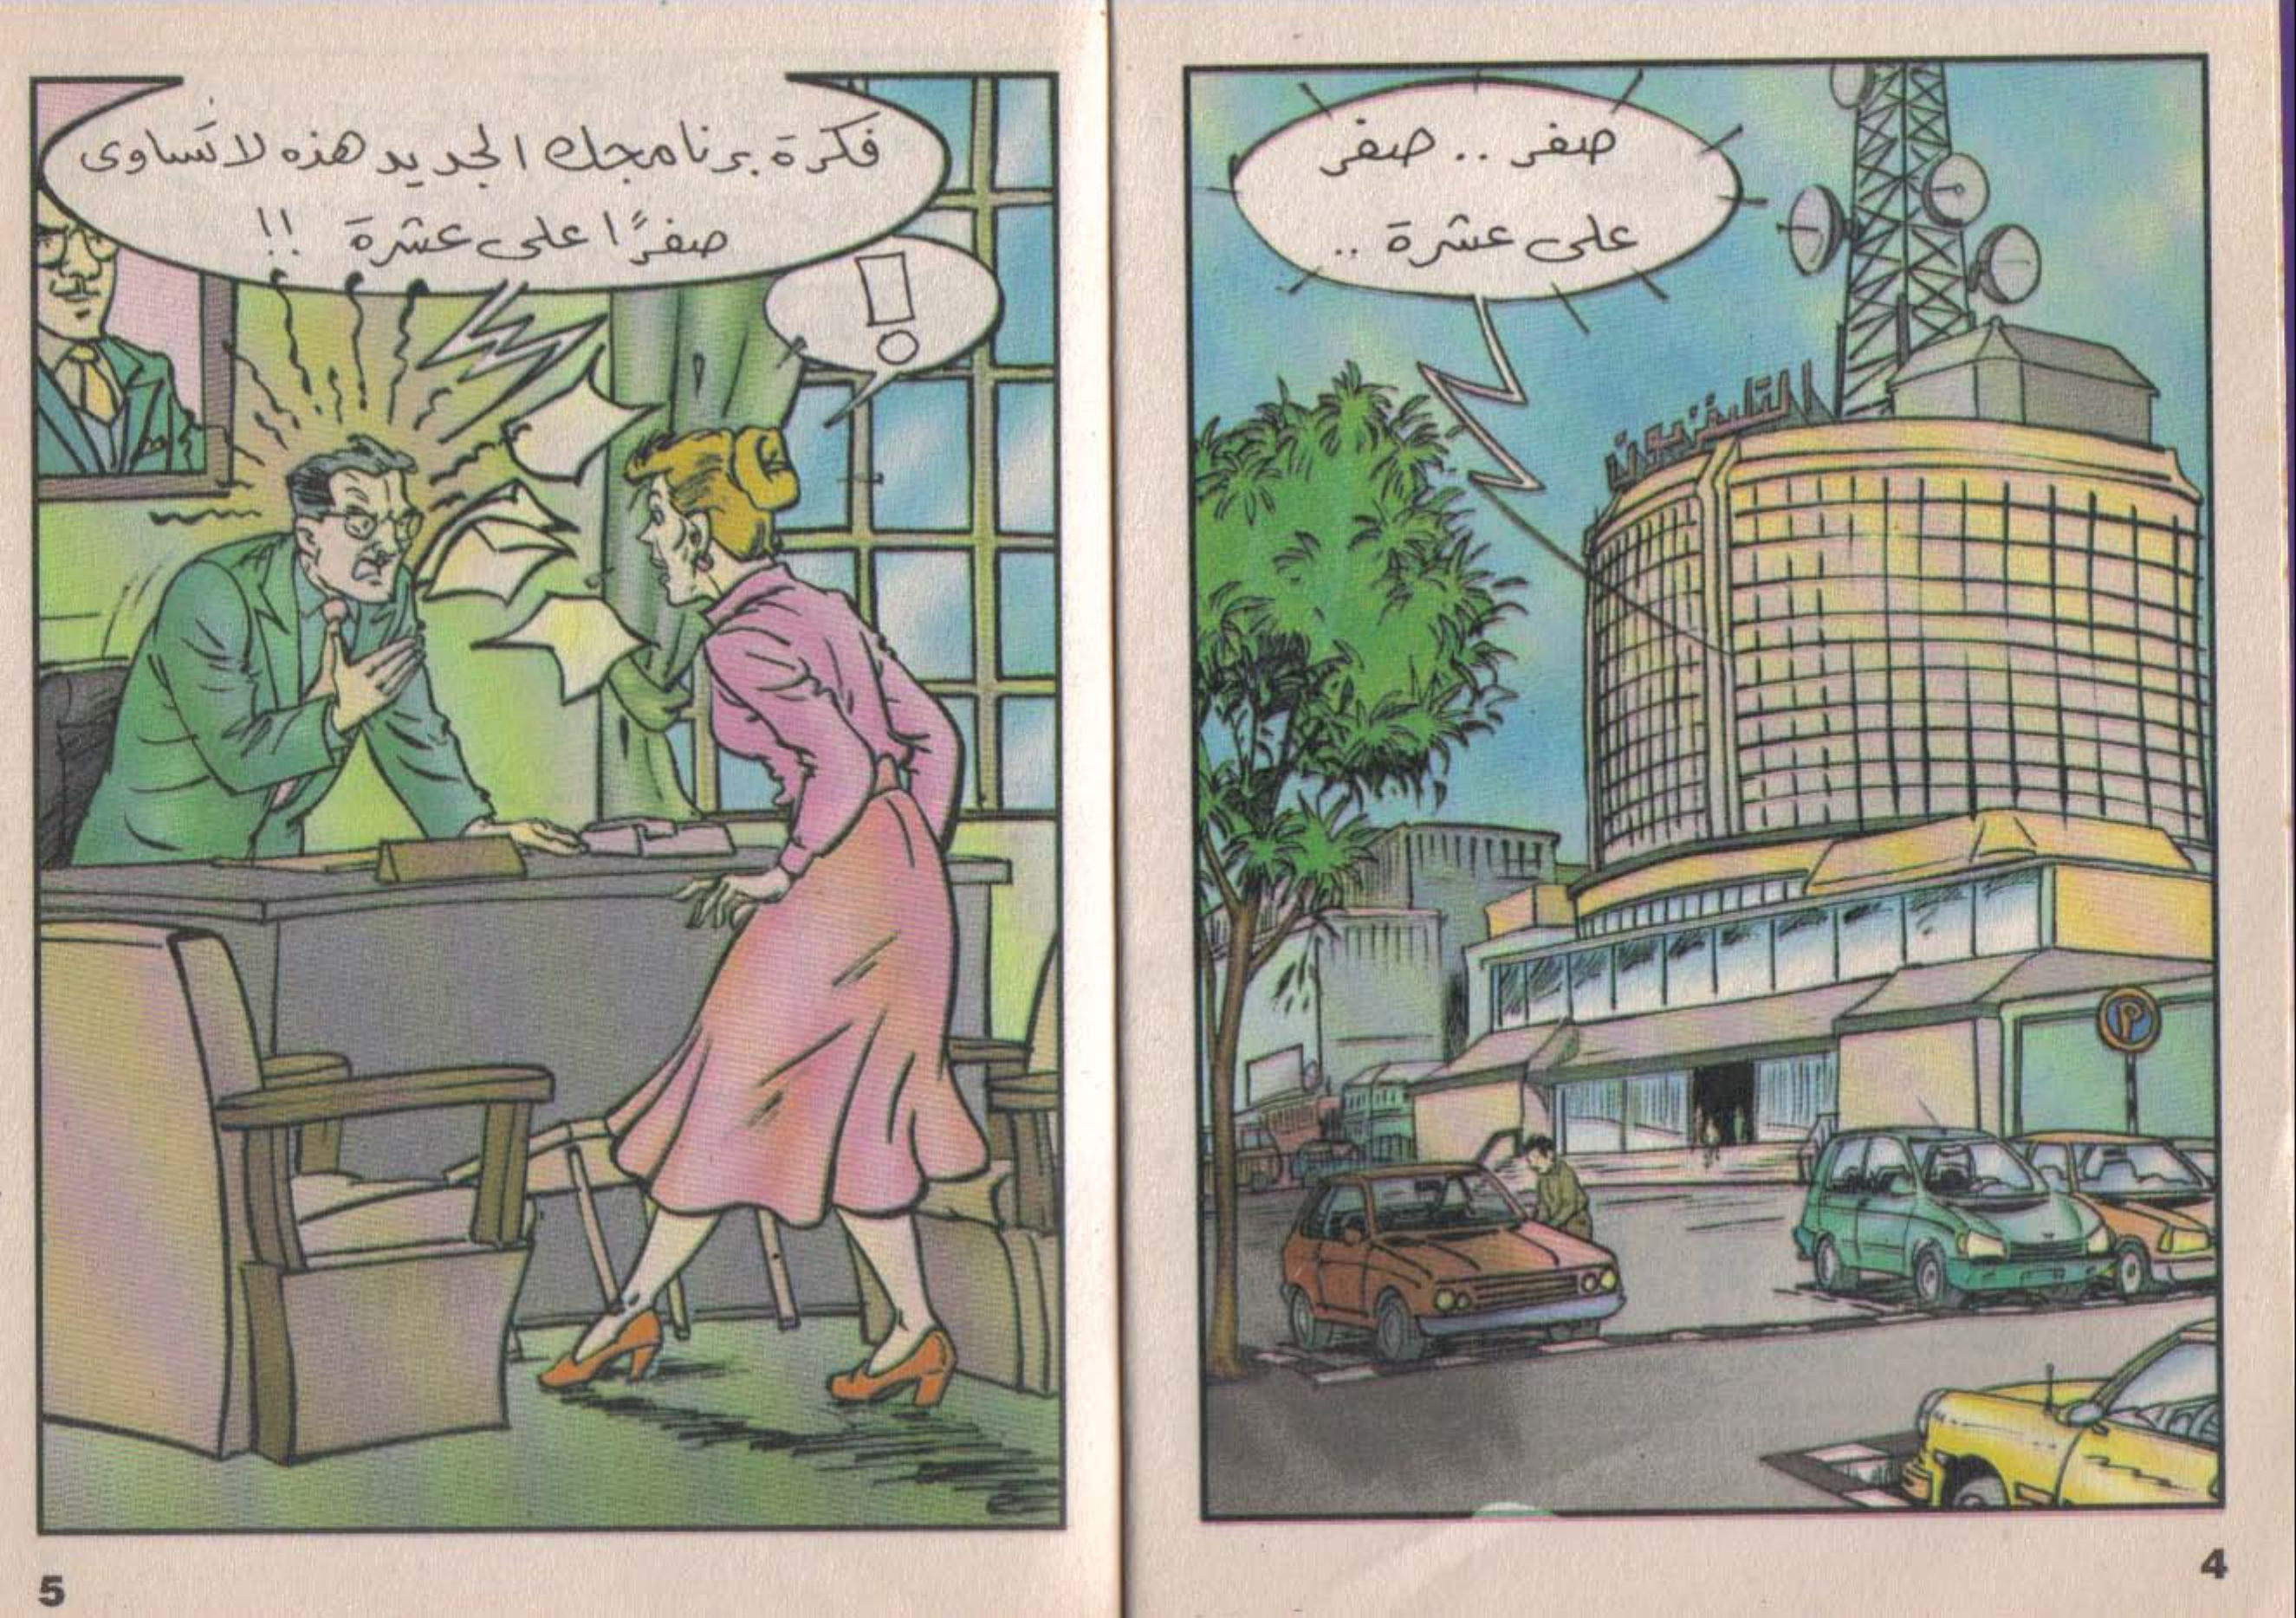 صفر .. صفر
على عشرة ..
التليفزيون
P
4
فكرة برنامجك الجديد هذه لا تَساوى
صفرًا على عشرة !!
!
5